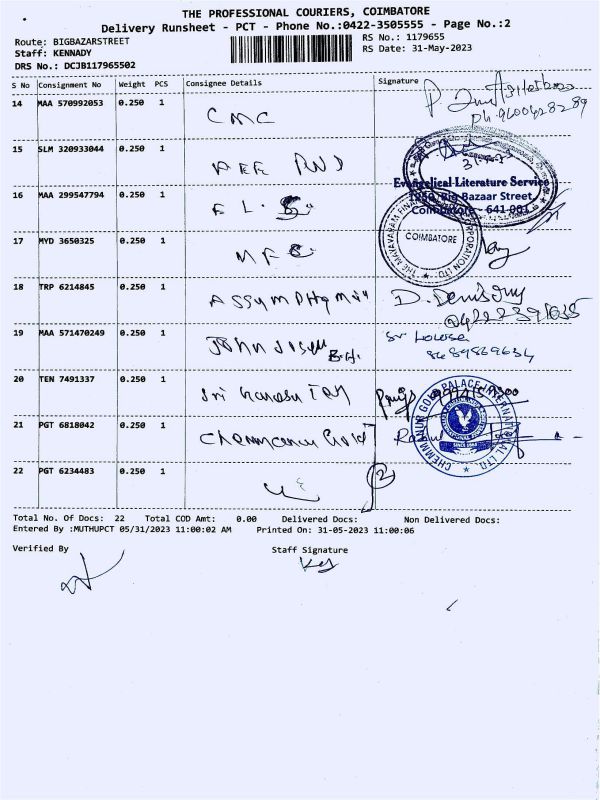 THE PROFESSIONAL COURIERS, COIMBATORE
Delivery Runsheet - PCT - Phone No.:0422-3505555 - Page No.:2
Route: BIGBAZARSTREET
RS No.: 1179655
Staff: KENNADY
RS Date: 31-May-2023
DRS No.: DCJB117965502
S No Consignment No Weight PCS Consignee Details Signature
14 MAA 570992053 0.250 1 CMC
15 SLM 320933044 0.250 1
16 MAA 299547794 0.250 1 E L. S
Evangelical Literature Service
Big Bazaar Street,
Coimbatore - 641 001
17 MYD 3650325 0.250 1 MFC
COIMBATORE
18 TRP 6214845 0.250 1
19 MAA 571470249 0.250 1 John Joseph
20 TEN 7491337 0.250 1 Sri
21 PGT 6818042 0.250 1 Chemmanur Gold
CHEMMANUR GOLD PALACE INTERNATIONAL LTD.
22 PGT 6234483 0.250 1 2
Total No. Of Docs: 22 Total COD Amt: 0.00 Delivered Docs: Non Delivered Docs:
Entered By :MUTHUPCT 05/31/2023 11:00:02 AM Printed On: 31-05-2023 11:00:06
Verified By Staff Signature